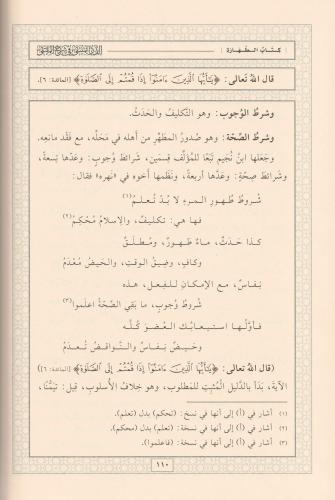 كتاب الطهارة
قال اللهُ تَعالى: ﴿يَٰٓأَيُّهَا ٱلَّذِينَ ءَامَنُوٓاْ إِذَا قُمۡتُمۡ إِلَى ٱلصَّلَوٰةِ﴾ [المائدة: ٦].
وشرطُ الوُجوبِ: وهو التَّكليفُ والحَدَثُ.
وشرطُ الصِّحَّة: وهو صُدورُ المطهِّرِ من أهلِه في مَحَلِّه، مع فَقْدِ مانعِه.
وجَعلَها ابنُ نُجَيم تَبَعًا للمؤلِّف قِسمَين، شَرائطَ وُجوبٍ: وعَدَّها تِسعةً،
وشَرائطَ صِحّةٍ: وعَدَّها أربعةً، ونَظَمها أخوه في «نهرِه» فقال:
شُروطُ طُهورِ المرءِ لا بُدَّ تُعلَمُ(١)
فها هِي: تكليفٌ، والإسلامُ مُحْكِمُ(٢)
كذا حَدَثٌ، ماءٌ طَهورٌ، ومُطلَقٌ
وكافٍ، وضِيقُ الوقتِ، والحَيضُ مُعْدَمُ
نِفاسٌ، مع الإمكانِ للفِعلِ، هذه
شُروطُ وُجوبٍ، ما بَقي الصِّحّةُ اعلَموا(٣)
فأوّلُها استيعابُك العُضوَ كُلَّه
وحَيضٌ نِفاسٌ والنَّواقِضُ تُعدَمُ
(قال اللهُ تعالى: ﴿يَٰٓأَيُّهَا ٱلَّذِينَ ءَامَنُوٓاْ إِذَا قُمۡتُمۡ إِلَى ٱلصَّلَوٰةِ﴾ [المائدة: ٦])
الآيةَ، بَدَأ بالدَّليلِ المُثبِتِ للمَطلوبِ، وهو خِلافُ الأسلوبِ، قِيل: تيمُّنًا،
(١) أشار في (أ) إلى أنها في نسخ: (تحكم) بدل (تعلم).
(٢) أشار في (أ) إلى أنها في نسخة: (تعلم) بدل (محكم).
(٣) أشار في (أ) إلى أنها في نسخة: (فاعلموا).
١١٠